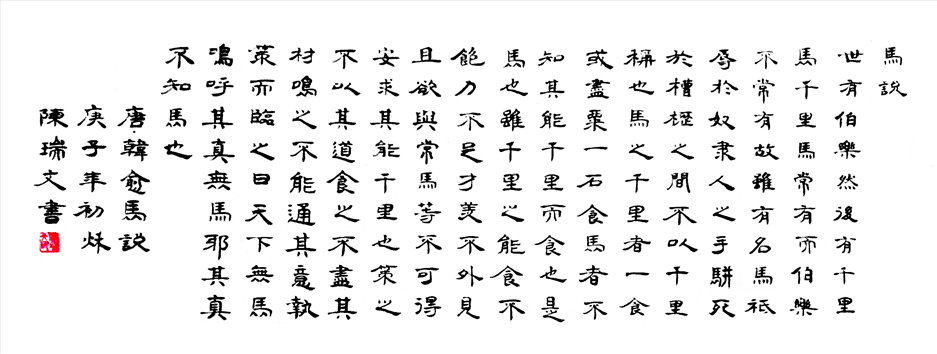 馬說
世有伯樂然後有千里
馬千里馬常有而伯樂
不常有故雖有名馬祗
辱於奴隶人之手駢死
於槽櫪之間不以千里
稱也馬之千里者一食
或盡粟一石食馬者不
知其能千里而食也是
馬也雖千里之能食不
飽力不足才美不外見
且欲與常馬等不可得
安求其能千里也策之
不以其道食之不盡其
材鳴之不能通其意執
策而臨之曰天下無馬
嗚呼其真無馬耶其真
不知馬也
唐·韓愈馬說
庚子年初秋
陳瑞文書